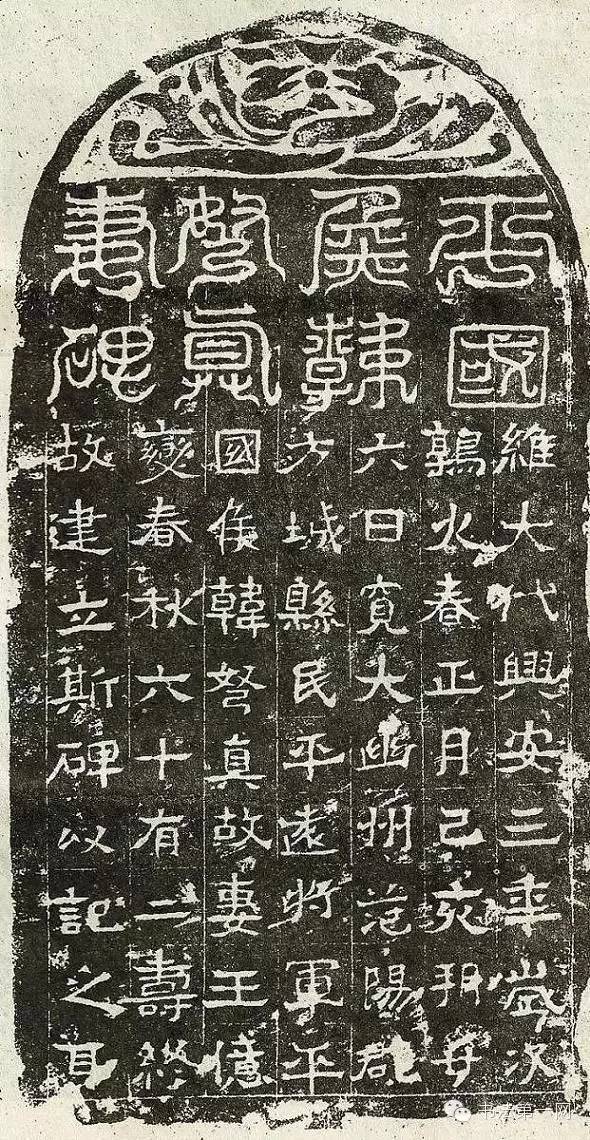 平國
侯韓
弩真
妻碑
維大代興安三年歲次
鶉火春正月己亥朔廿
六日寬大幽州范陽郡
方城縣民平遠將軍平
國侯韓弩真故妻王億
變春秋六十有二壽終
故建立斯碑以記之耳
书法第一网